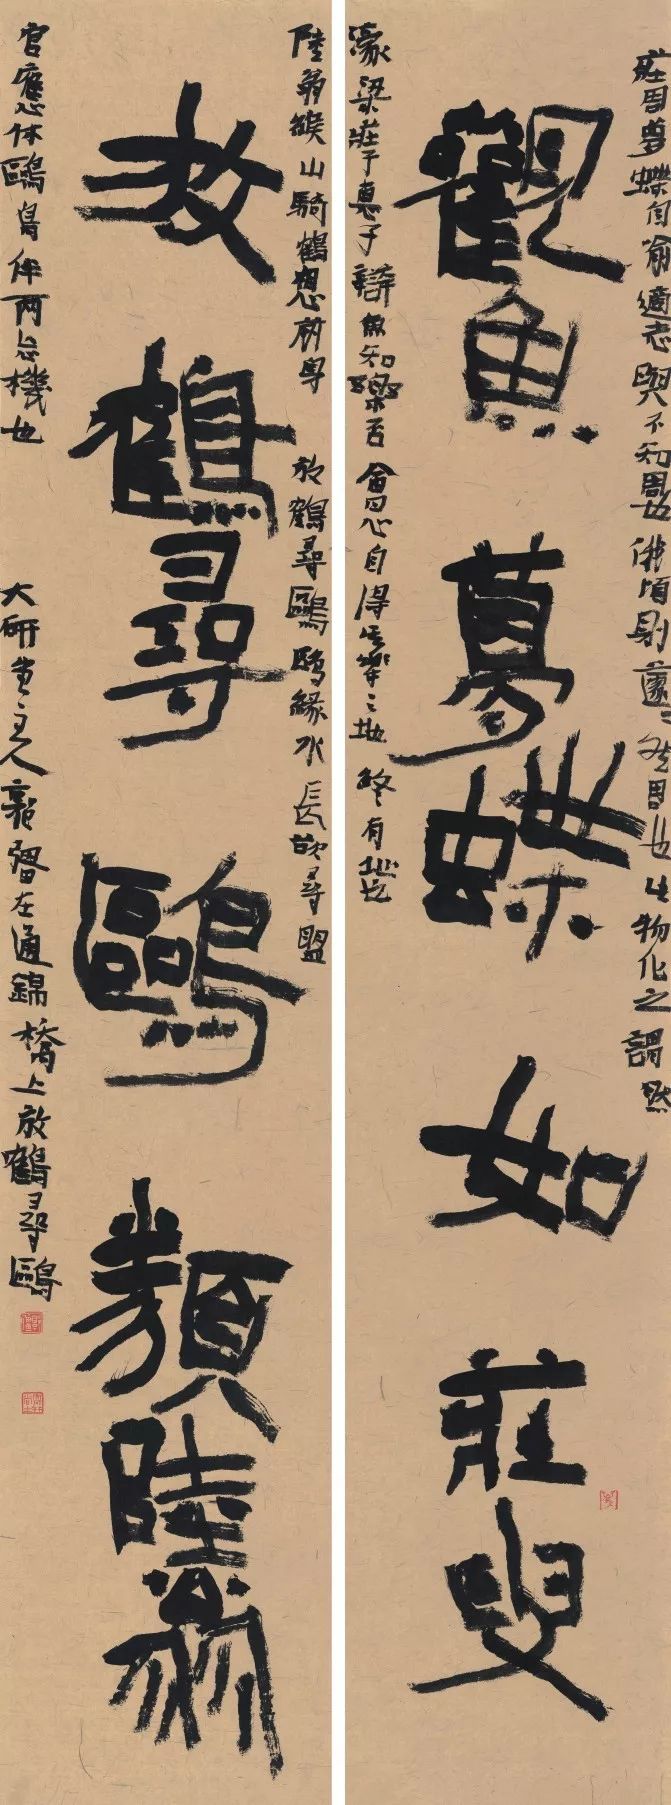 觀魚夢蝶如莊叟
放鶴尋鷗類陸翁
莊周夢蝶自喻適志與不知周也俄頃則蘧蘧然周也此物化之謂然
濠梁莊子惠子辯魚知樂否會心自得其樂之地終有
陸翁緱山騎鶴想前身
放鶴尋鷗鷗緣水長故尋盟
官應休鷗鳥伴兩忘機也
大研堂主人 在通錦橋上放鶴尋鷗